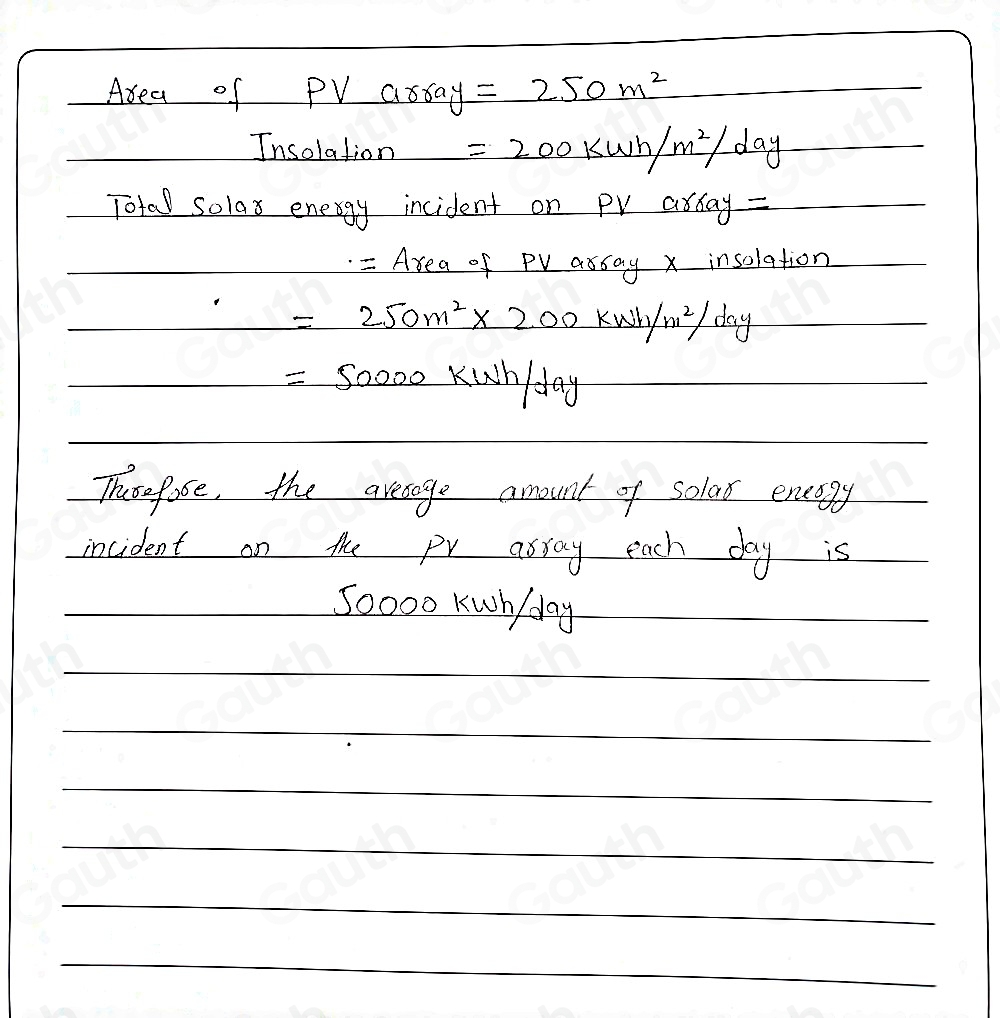 Area of PV array = 250 m²
Insolation = 200 KWh/m²/day
Total Solar energy incident on PV array =
= Area of PV array x insolation
= 250m² x 200 KWh/m²/day
= 50000 KWh/day
Therefore, the average amount of solar energy
incident on the PV array each day is
50000 KWh/day